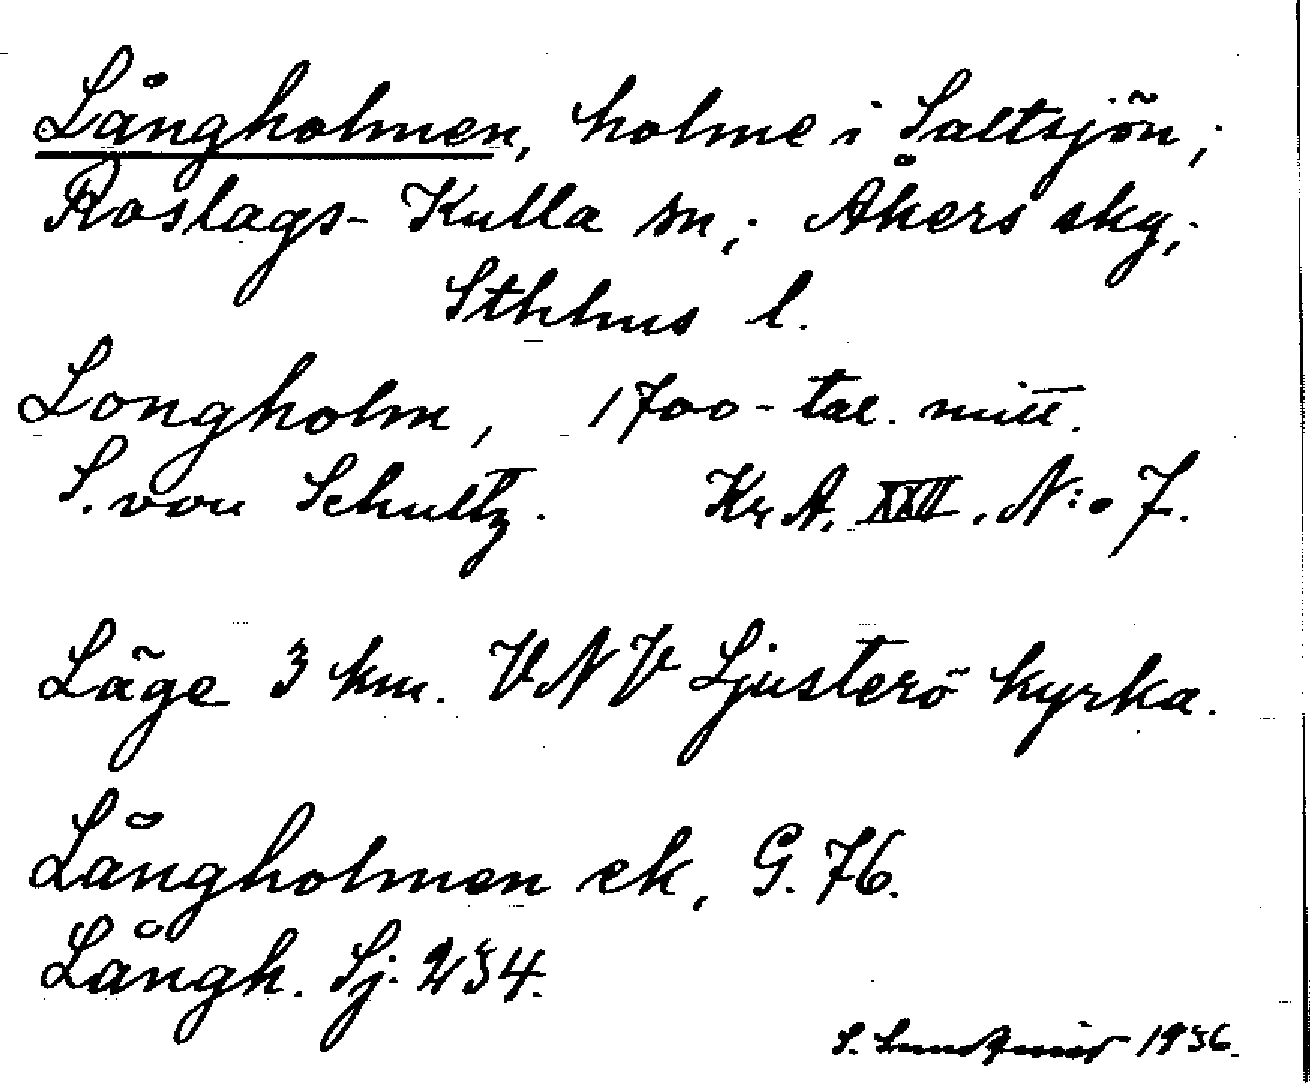 Långholmen, holme i Saltsjön;
Roslags-Kulla sn; Åkers skg;
Sthlms l.
Longholm, 1700-tal. mitt.
S. von Schultz. Kr. A. XXII. N:o 7.
Läge 3 km. VNV Ljusterö kyrka.
Långholmen ek, G. 76.
Långh. Sj. 234.
S. 1936.